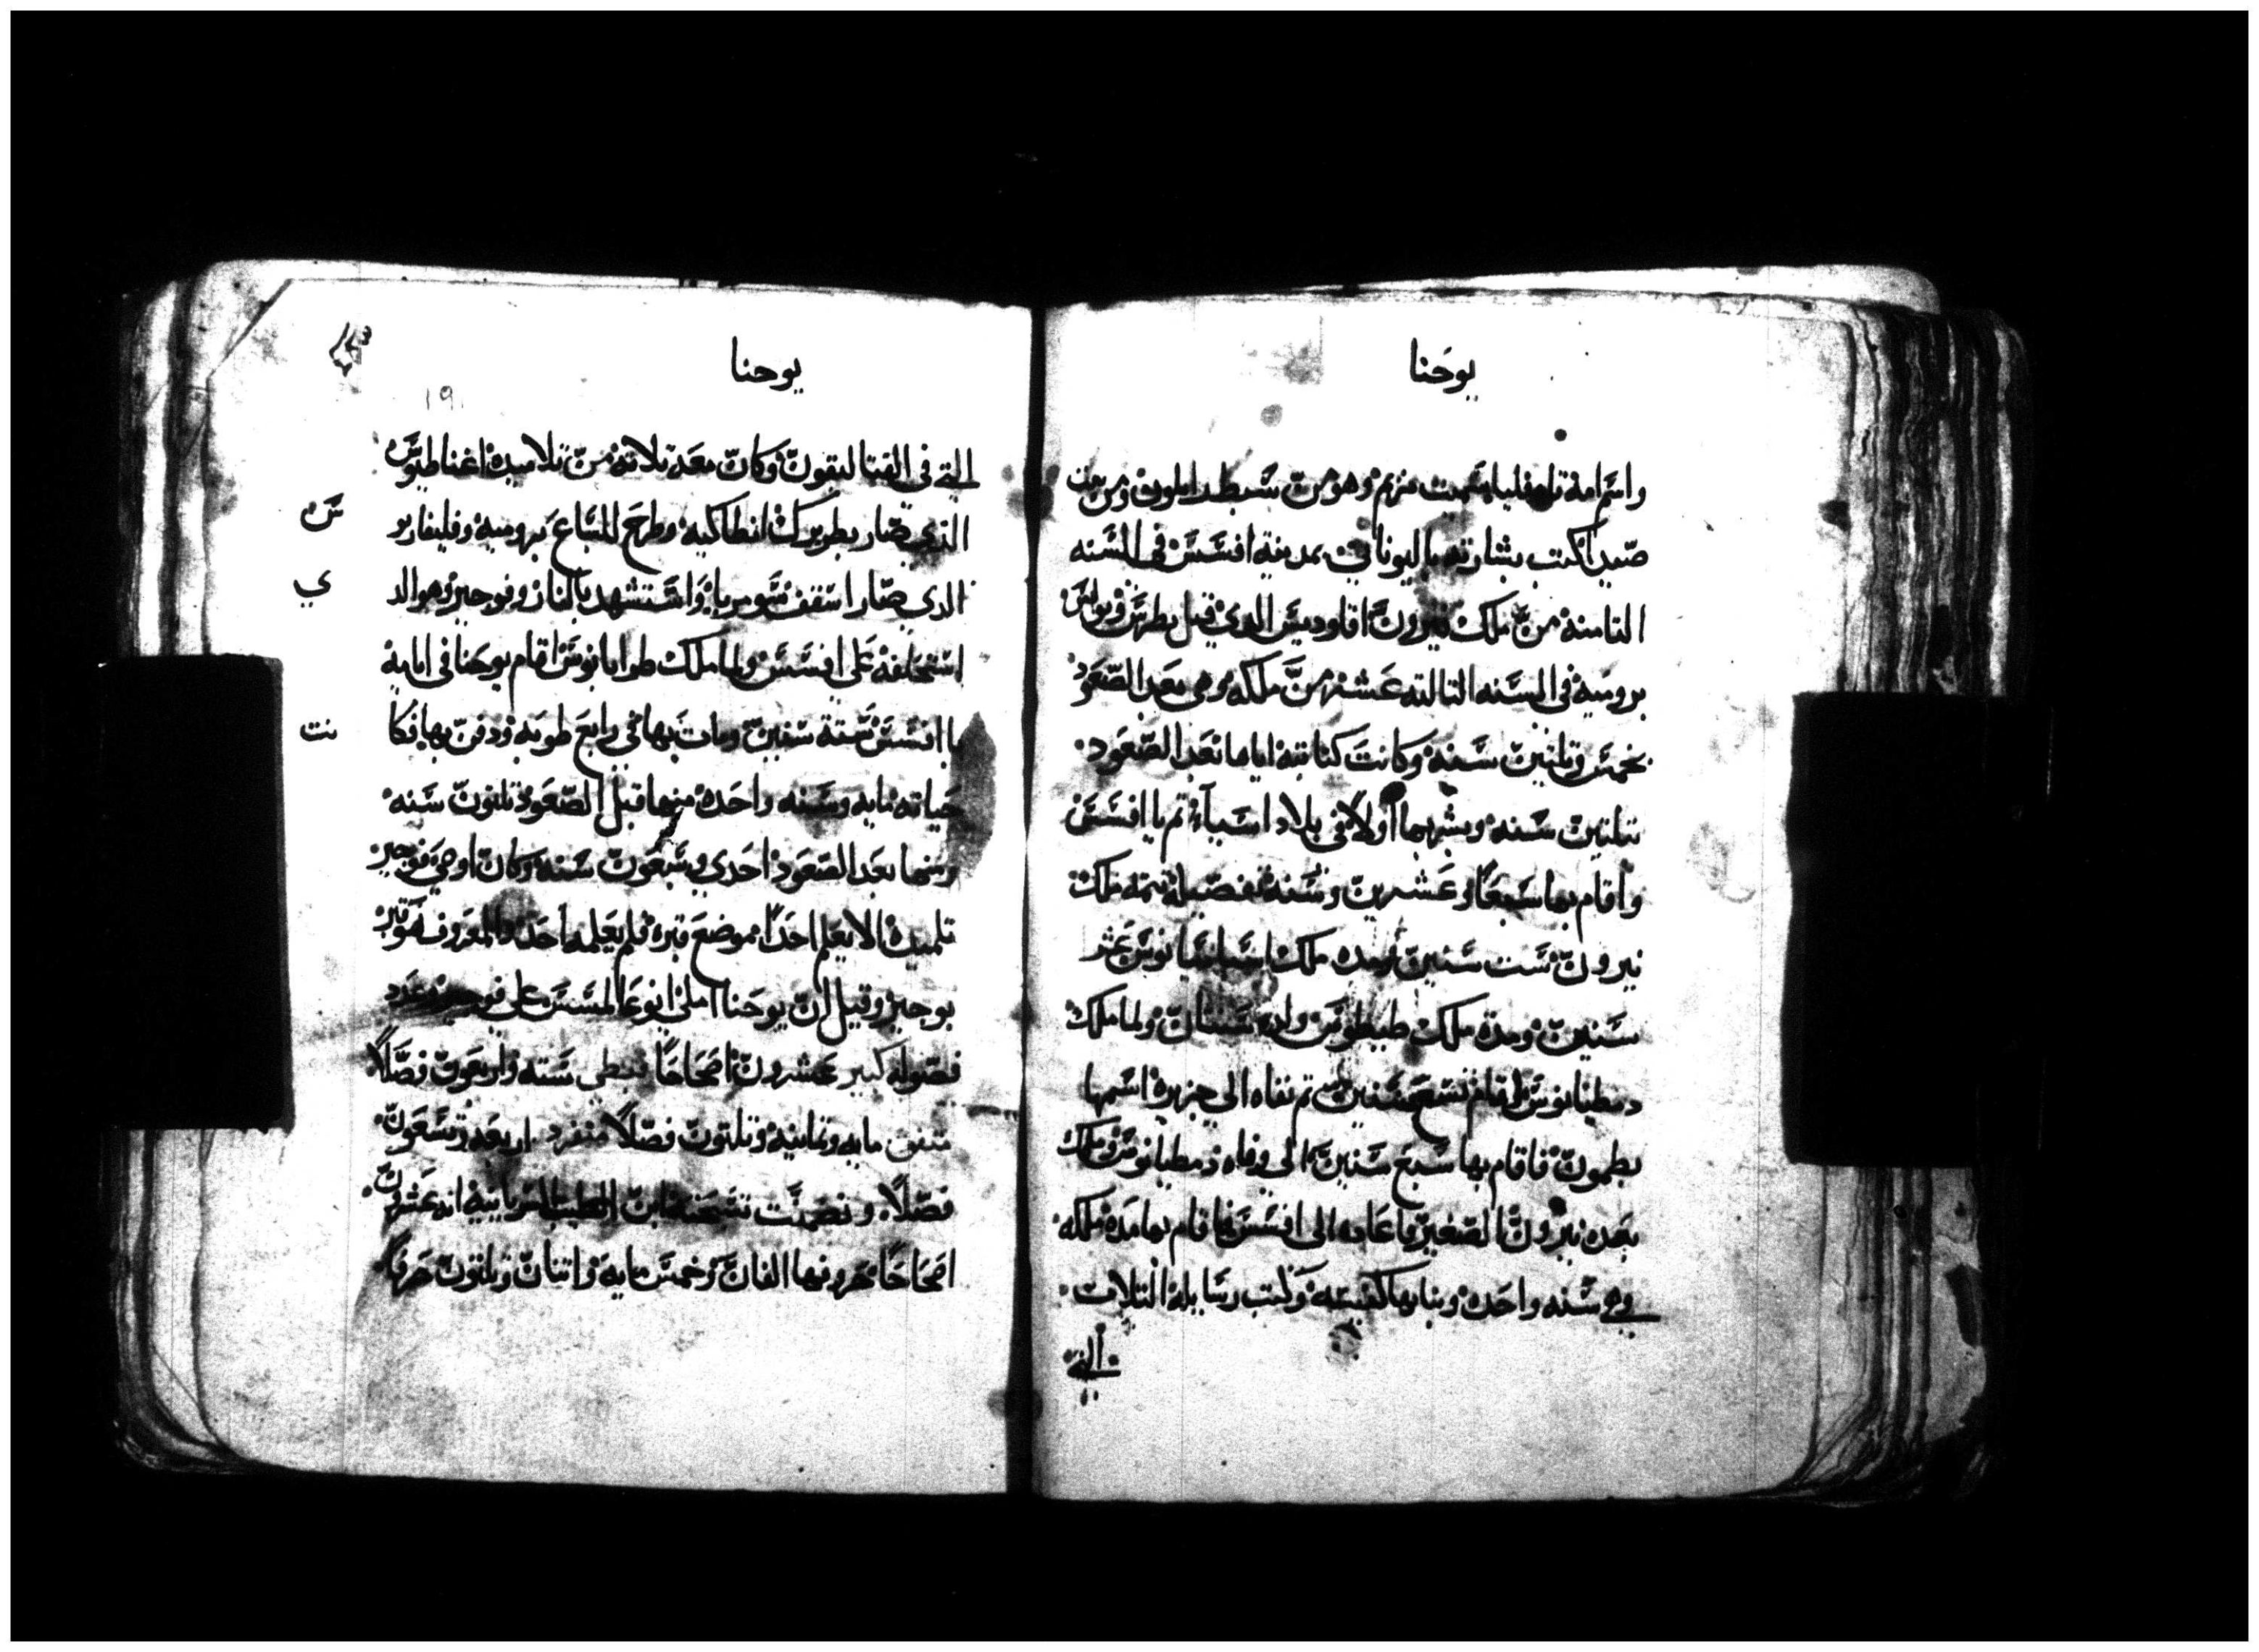 يوحنا
واسم امه تاوفليا سميت مريم وهو من سبط زابلون ومن بيت
صيدا كتب بشارته باليوناني بمدينة افسس في السنه
التامنه من ملك نيرون اقلوديس الدي قتل بطرس وبولس
بروميه في السنه التالته عشر من ملكه وهي بعد الصعود
بخمس وتلتين سنه وكانت كتابته اياها بعد الصعود
بتلتين سنه وبشر بها اولا في بلاد اسيا تم با افسس
واقام بها سبعا وعشرين سنه تتمه ملك
نيرون ست سنين ومده ملك اسباسيانوس عشر
سنين ومدة ملك طيطوس ولده سنتان ولما ملك
دمطيانوس اقام تسع سنين تم نفاه الي جزيرة اسمها
بطمون فاقام بها سبع سنين الي وفاه دمطيانوس وملك
بعده نيرون الصغير فاعاده الي افسس فاقام بها مدة ملكه
وهي سنه واحده وبنا بها كنيسه وكتب رسايله التلات
التي
يوحنا
١٩١
التي في القتاليقون وكان معه تلاته من تلاميده اغناطيوس
الذي صار بطريرك انطاكيه وطرح للسباع بروميه وفليقاربو
س
الدي صار اسقف سوميريا واستشهد بالنار وفوجير وهو الد
ي
استخلفه علي افسس ولما ملك طرايانوس اقام يوحنا في ايامه
با افسس ستة سنين ومات بها في رابع طوبه ودفن بها فكا
نت
حياته مايه وسنه واحده منها قبل الصعود تلتون سنه
ومنها بعد الصعود احدي وسبعون سنه وكان اوصي فوجير
تلميده الا يعلم احدا بموضع قبره فلم يعلمه احد والمعروف هو قبر
بوجير وقيل ان يوحنا املي علي فوجير وعدد
فصوله كبير عشرون اصحاحا قبطي سته واربعون فصلا
مايه وتمانيه وتلتون فصلا منفرد اربعه وتسعون
فصلا وتضمنت نسخة ابن الطيب السريانيه انه عشرون
اصحاحا حروفها الفان وخمس مايه واتنان وتلتون حرفا